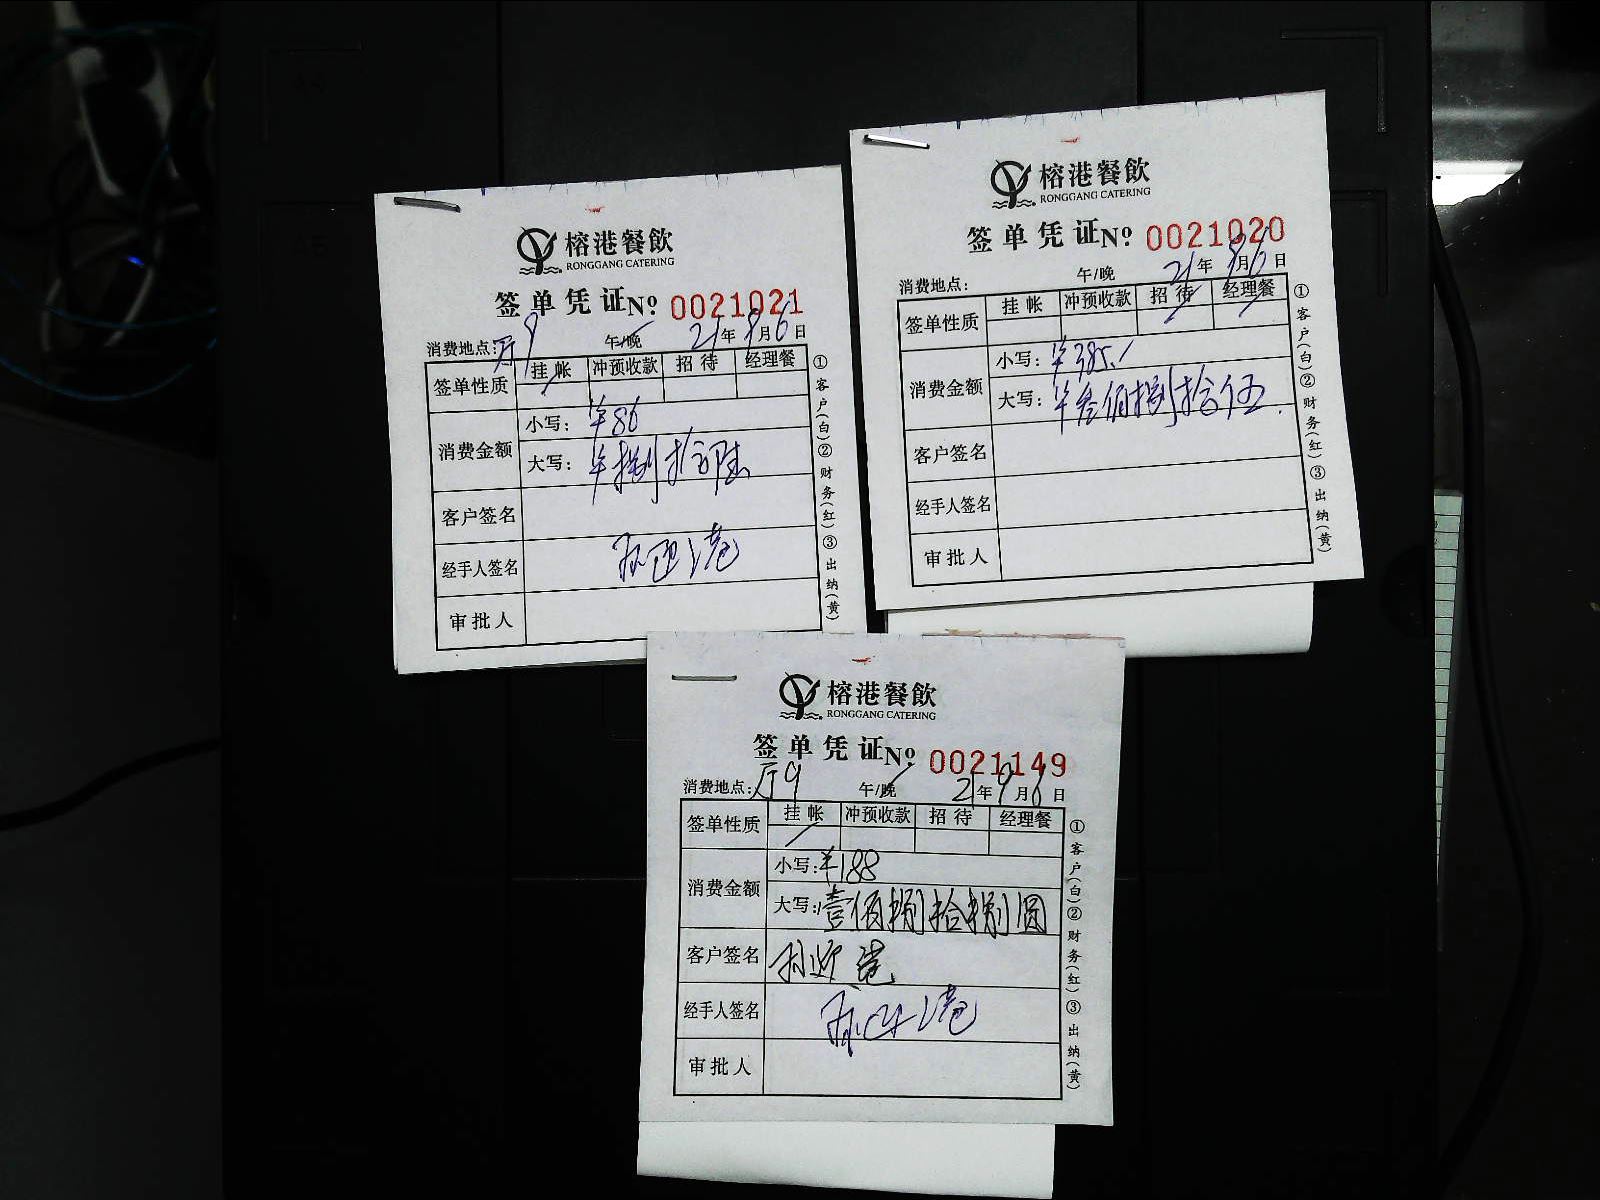 榕港餐飲
RONGGANG CATERING
签单凭证 Nº 0021021
消费地点: 厅9 午/晚 21年9月6日
签单性质 挂帐 冲预收款 招待 经理餐
消费金额 小写: ¥86
大写: ¥捌拾陆
客户签名
经手人签名
审批人
①客户(白)②财务(红)③出纳(黄)
榕港餐飲
RONGGANG CATERING
签单凭证 Nº 0021020
消费地点: 午/晚 21年9月6日
签单性质 挂帐 冲预收款 招待 经理餐
消费金额 小写: ¥385.
大写: ¥叁佰捌拾伍
客户签名
经手人签名
审批人
①客户(白)②财务(红)③出纳(黄)
榕港餐飲
RONGGANG CATERING
签单凭证 Nº 0021149
消费地点: 厅9 午/晚 21年9月6日
签单性质 挂帐 冲预收款 招待 经理餐
消费金额 小写: ¥188
大写: 壹佰捌拾捌圆
客户签名
经手人签名
审批人
①客户(白)②财务(红)③出纳(黄)